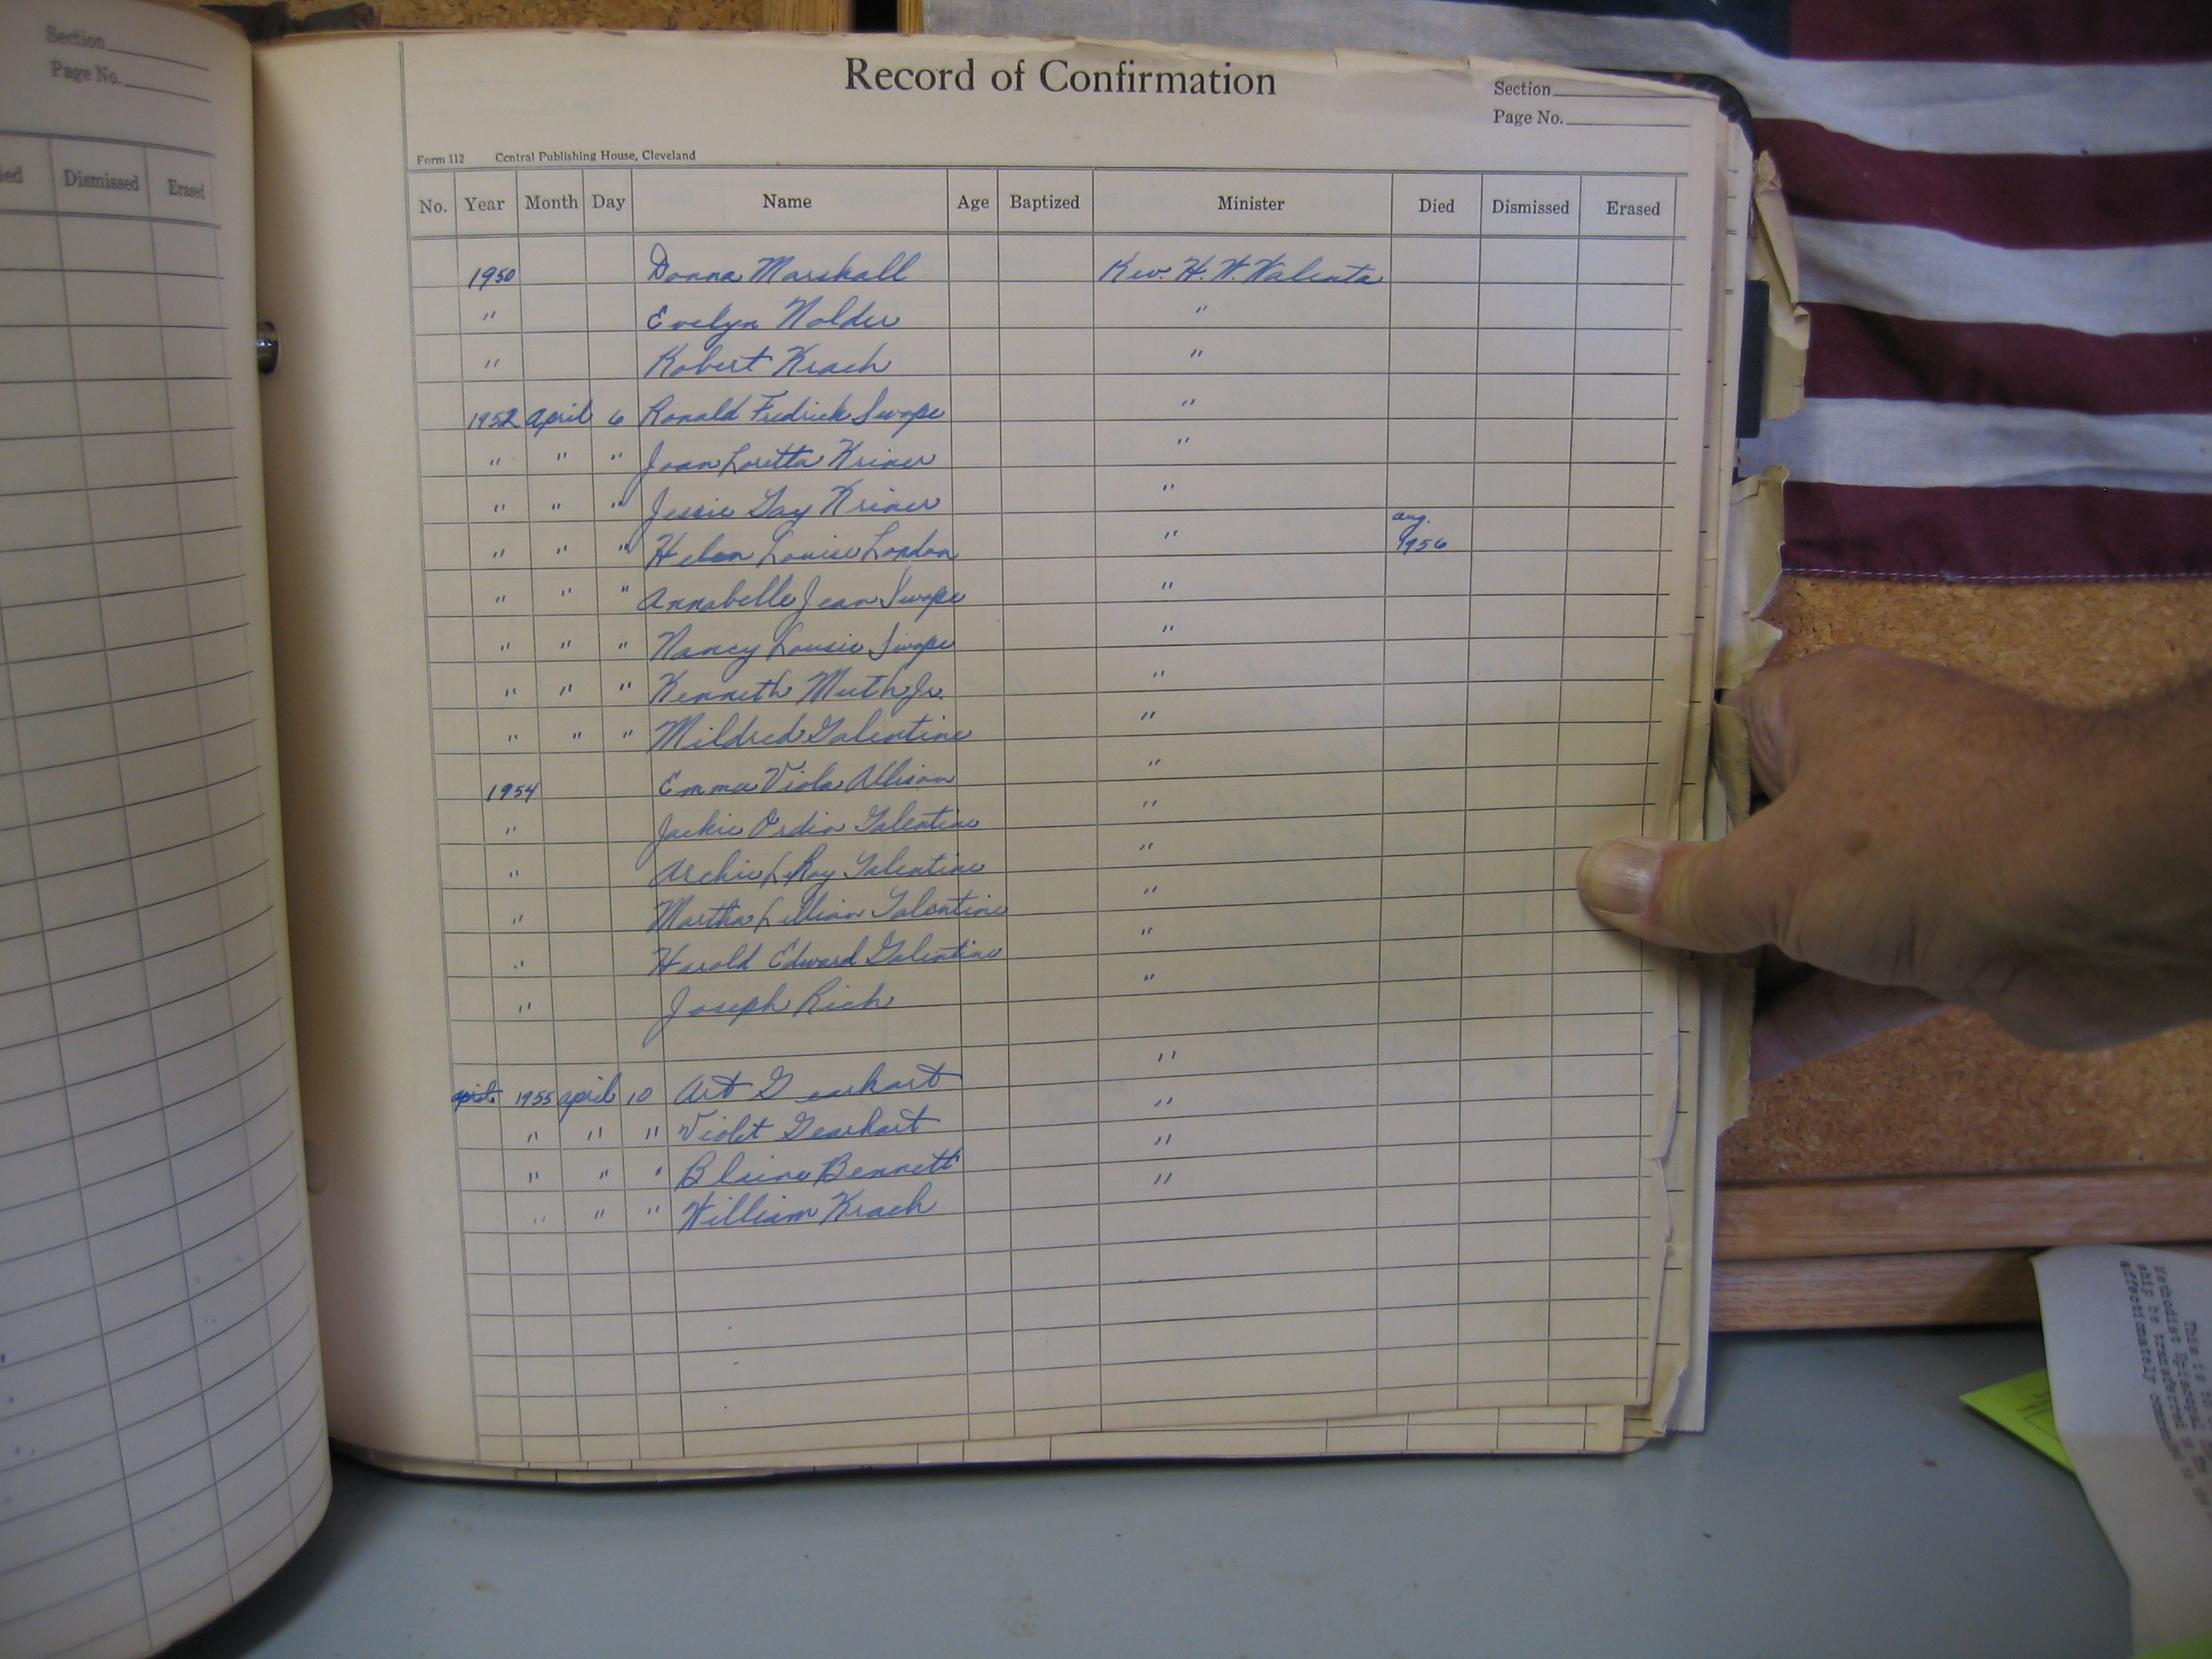 Section
Page No.
Dismissed Erased
Record of Confirmation
Section
Page No.
Form 112 Central Publishing House, Cleveland
No. Year Month Day Name Age Baptized Minister Died Dismissed Erased
1950 Donna Marshall Rev. H. W. Walenta
" Evelyn Nolder "
" Robert Krach "
1952 April 6 Ronald Fredrick Swope "
" " " Joan Loretta Kriner "
" " " Jessie Gay Kriner "
" " " Helen Louise London " Aug. 1956
" " " Annabelle Jean Swope "
" " " Nancy Lousie Swope "
" " " Kenneth Muth Jr. "
" " " Mildred Galentine "
1954 Emma Viola Allison "
" Jackie Ordin Galentine "
" Archie LeRoy Galentine "
" Martha Lillian Galentine "
" Harold Edward Galentine "
" Joseph Rich "
1955 April 10 Art Gearhart "
" " " Violet Gearhart "
" " " Blaine Bennett "
" " " William Krach "
This is to
Methodist Episcopal
ship be transferred
affectionately